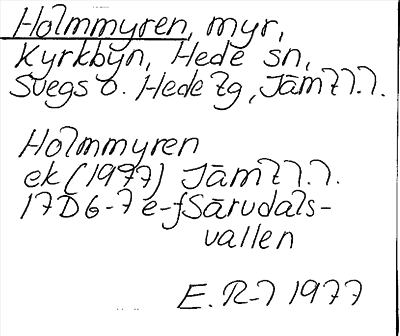 Holmmyren, myr,
Kyrkbyn, Hede sn,
Svegs o. Hede tg, Jämtl.l.
Holmmyren
ek (1977) Jämtl.l.
17D 6-7 e-f Särvdals-
vallen
E. R-l 1977